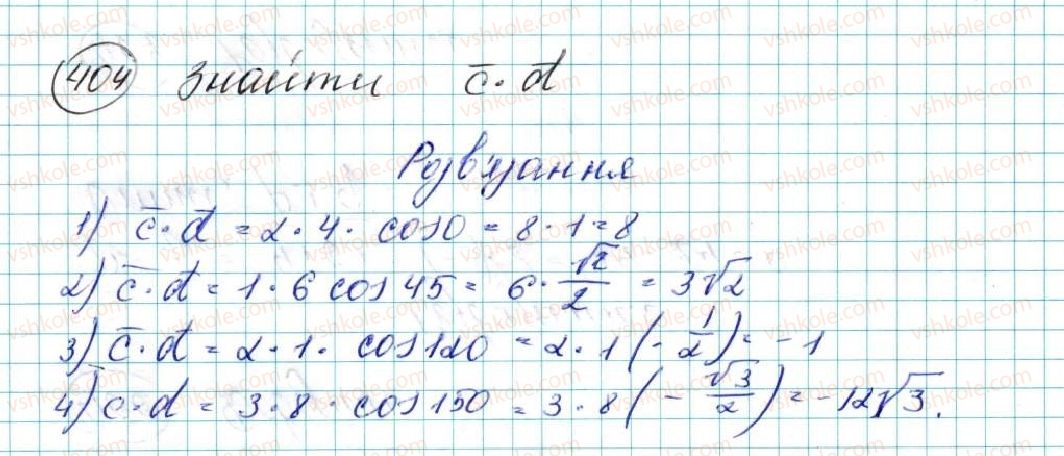 404 Знайти c̄·d̄
Розв'язання
1) c̄·d̄ = 2·4·cos0 = 8·1 = 8
2) c̄·d̄ = 1·6 cos45 = 6·√2/2 = 3√2
3) c̄·d̄ = 2·1·cos120 = 2·1(-1/2) = -1
4) c̄·d̄ = 3·8·cos150 = 3·8(-√3/2) = -12√3.
vshkole.com